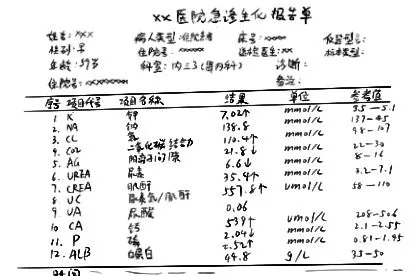 xx 医院急诊生化报告单
姓名: xxx 病人类型: 住院患者 床号: xxx
性别: 男 住院号: xxxxx 送检医生: xx 标本类型:
年龄: 59岁 科室: 内三3(肾内科) 诊断:
住院号: xxxxxxx 备注:
序号 项目代号 项目名称 结果 单位 参考值
1 K 钾 7.02↑ mmol/L 3.5-5.1
2 NA 钠 138.8 mmol/L 137-45
3 CL 氯 110.4↑ mmol/L 98-107
4 CO2 二氧化碳结合力 21.8↓ mmol/L 22-30
5 AG 阴离子间隙 6.6↓ mmol/L 8-16
6 UREA 尿素 35.4↑ mmol/L 3.2-7.1
7 CREA 肌酐 557.8↑ mmol/L 58-110
8 UC 尿素氮/肌酐 0.06
9 UA 尿酸 539↑ umol/L 208-506
10 CA 钙 2.04↓ mmol/L 2.1-2.55
11 P 磷 2.52↑ mmol/L 0.81-1.45
12 ALB 白蛋白 44.8 g/L 35-50